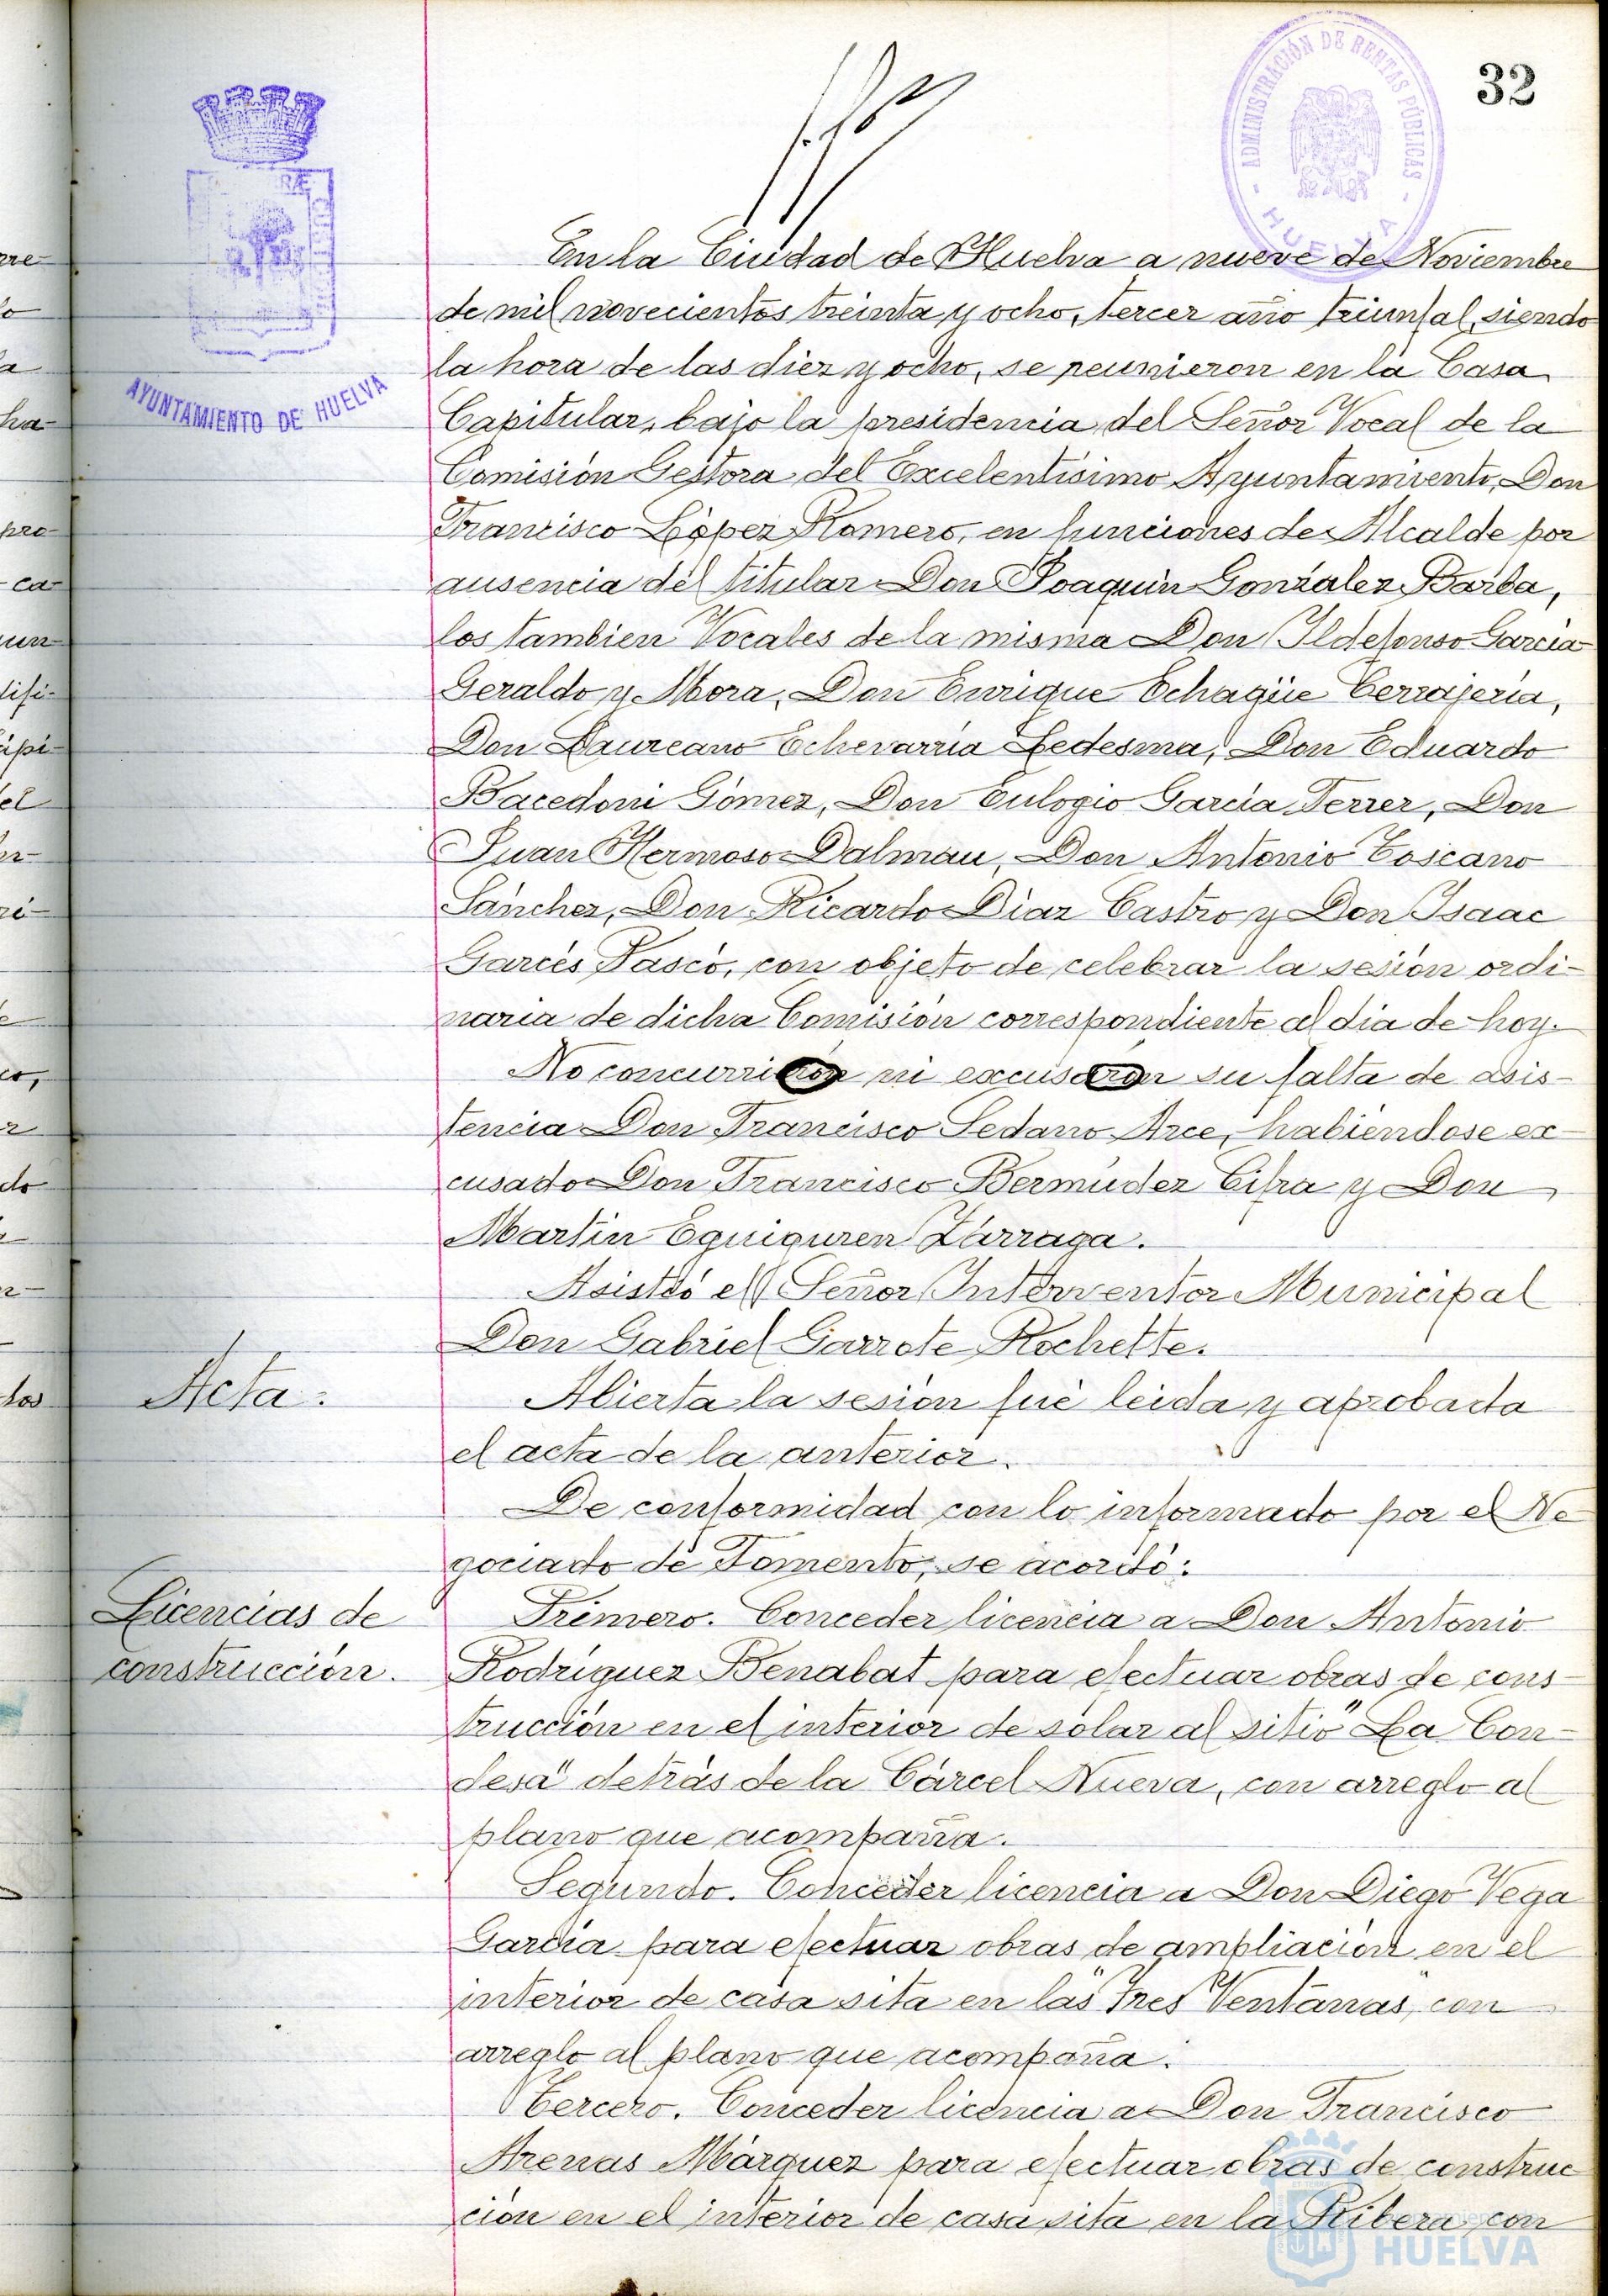 32
ADMINISTRACIÓN DE RENTAS PÚBLICAS
- HUELVA -
AYUNTAMIENTO DE HUELVA
En la Ciudad de Huelva a nueve de Noviembre
de mil novecientos treinta y ocho, tercer año triunfal, siendo
la hora de las diez y ocho, se reunieron en la Casa
Capitular, bajo la presidencia del Señor Vocal de la
Comisión Gestora del Excelentísimo Ayuntamiento, Don
Francisco López Romero, en funciones de Alcalde por
ausencia del titular Don Joaquín González Barba,
los tambien Vocales de la misma Don Ildefonso García
Geraldo y Mora, Don Enrique Echagüe Cerrajería,
Don Laureano Echevarría Ledesma, Don Eduardo
Bacedoni Gómez, Don Eulogio García Ferrer, Don
Juan Hermoso Dalmau, Don Antonio Toscano
Sánchez, Don Ricardo Díaz Castro y Don Isaac
Garcés Pascó, con objeto de celebrar la sesión ordi-
naria de dicha Comisión correspondiente al día de hoy.
No concurrieron ni excusaron su falta de asis-
tencia Don Francisco Sedano Arce, habiéndose ex-
cusado Don Francisco Bermúdez Cifra y Don
Martín Eguiguren Zárraga.
Asistió el Señor Interventor Municipal
Don Gabriel Garrote Rochette.
Acta.
Abierta la sesión fué leida y aprobada
el acta de la anterior.
De conformidad con lo informado por el Ne
gociado de Fomento, se acordó:
Licencias de
construcción.
Primero. Conceder licencia a Don Antonio
Rodríguez Benabat para efectuar obras de cons-
trucción en el interior de solar al sitio "La Con-
desa" detrás de la Cárcel Nueva, con arreglo al
plano que acompaña.
Segundo. Conceder licencia a Don Diego Vega
García para efectuar obras de ampliación en el
interior de casa sita en las "Tres Ventanas", con
arreglo al plano que acompaña.
Tercero. Conceder licencia a Don Francisco
Arenas Márquez para efectuar obras de construc
ción en el interior de casa sita en la Ribera, con
HUELVA